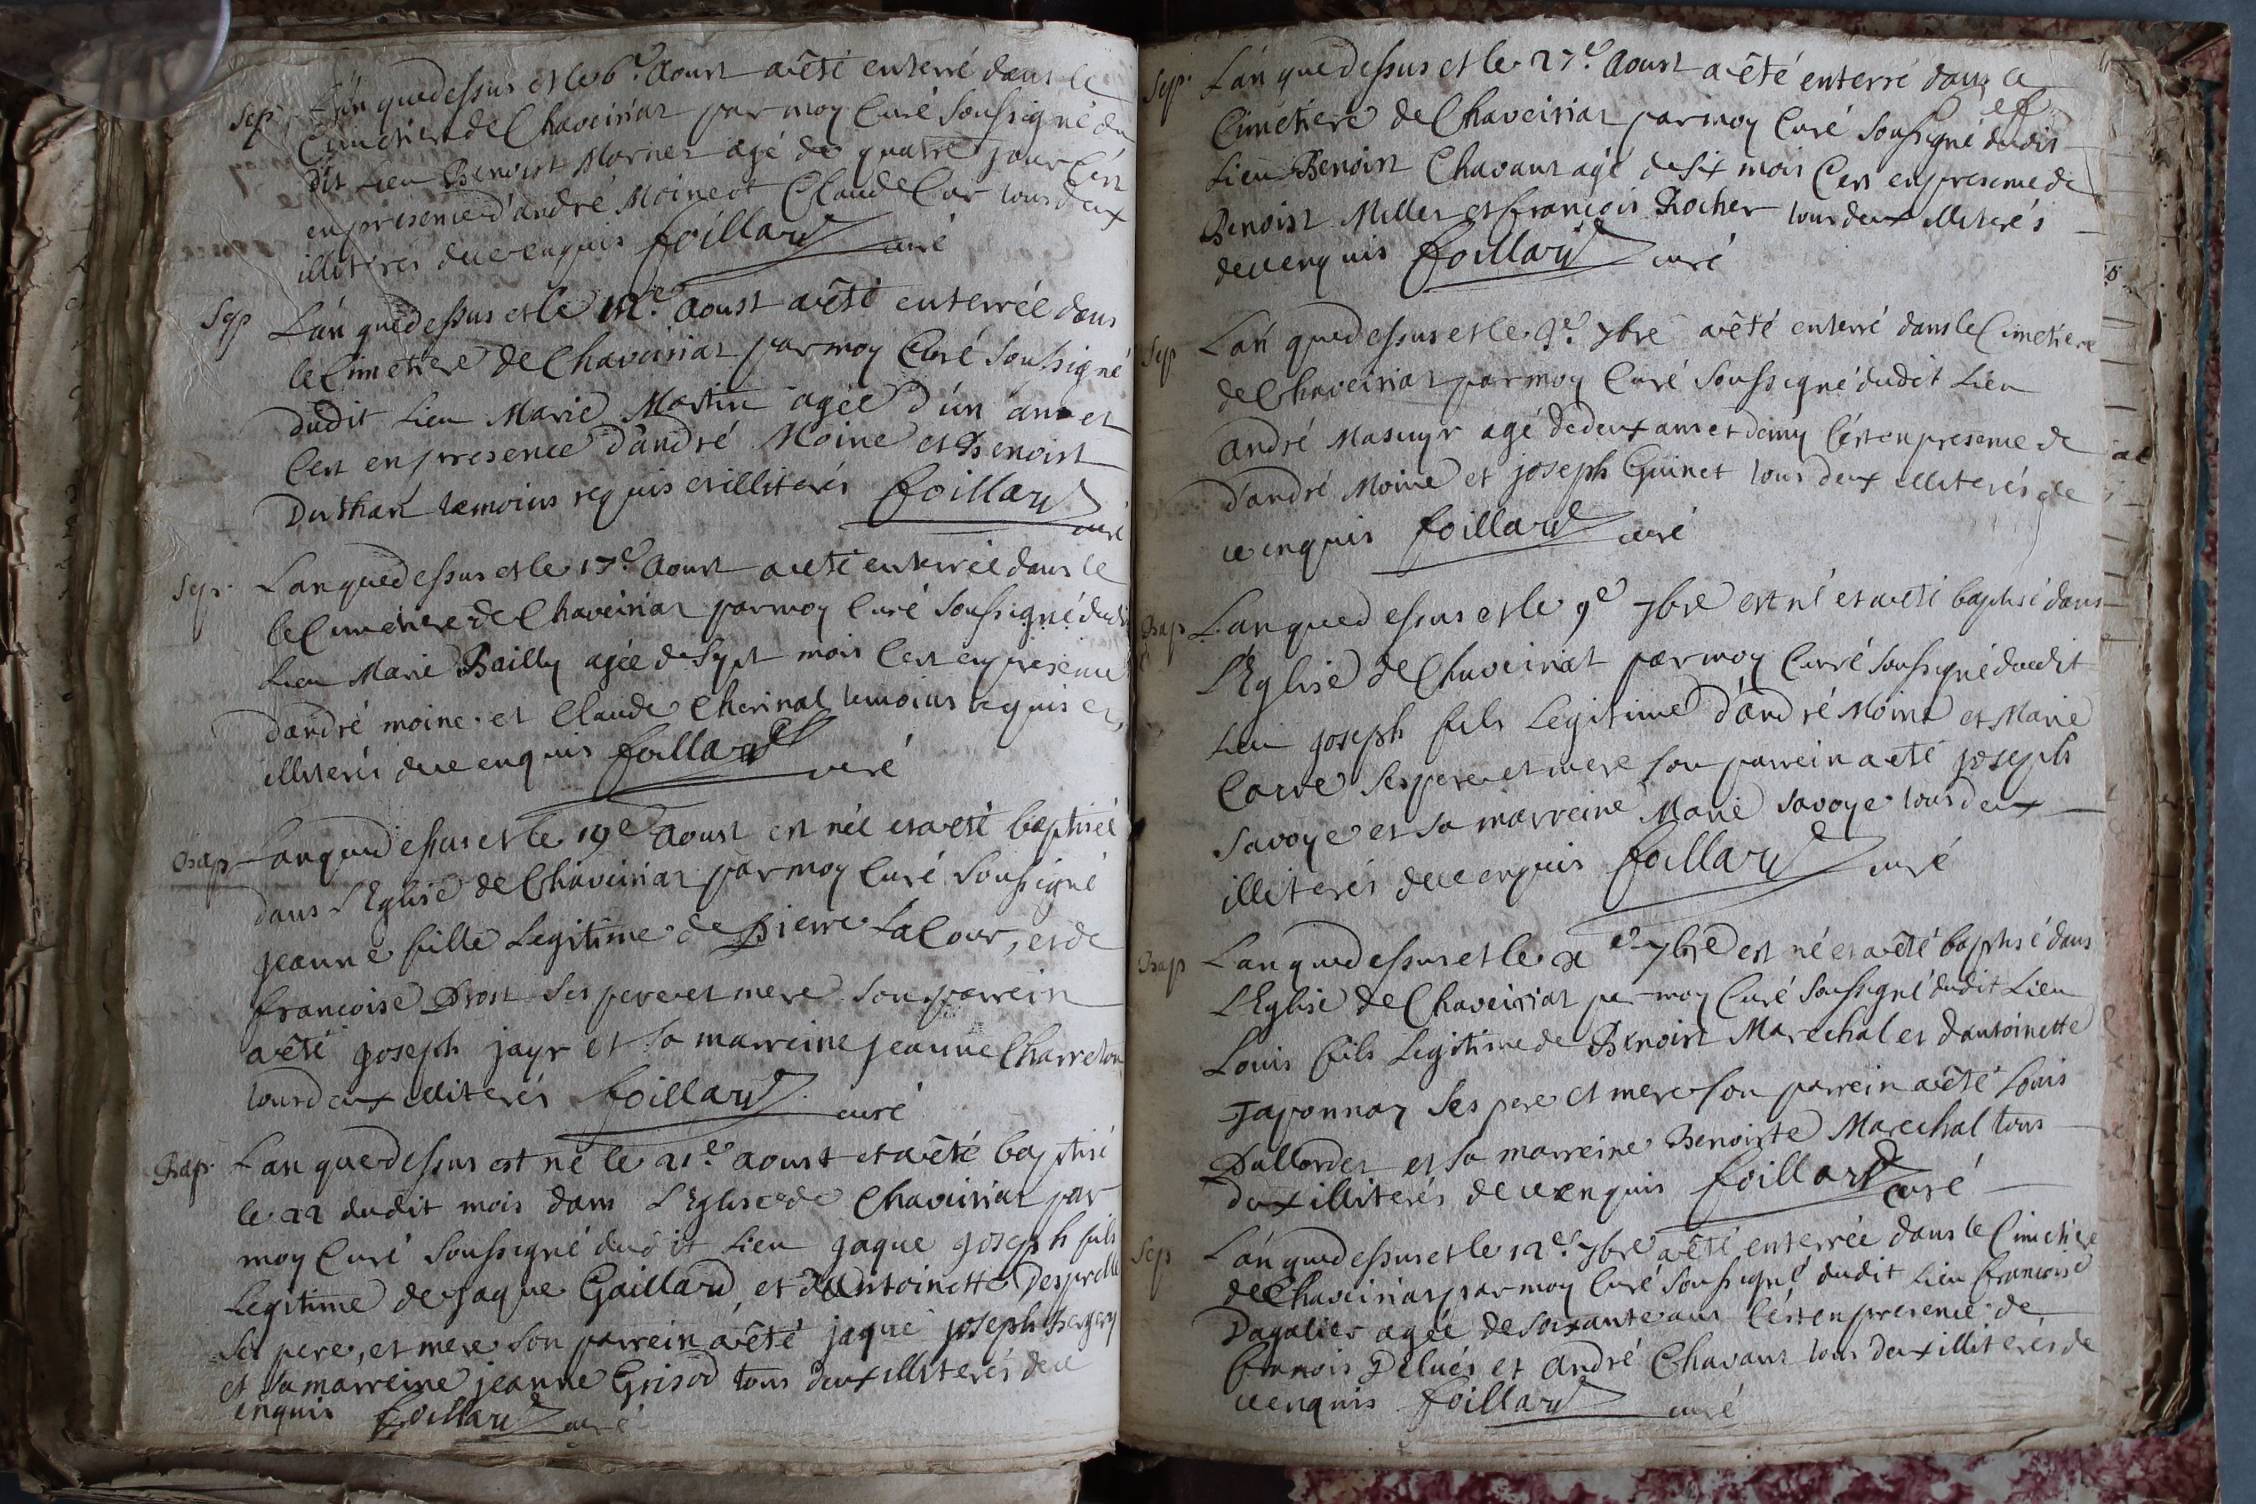 Sep. L'an que dessus et le 6.e Aoust a êté enterré dans le
Cimetiere de Chaveiriat par moy Curé soussigné du
dit Lieu Benoist Mornet agé de quatre jour C'est
en présence d'andré Moine et Claude Cor tous deux
illiterés de ce enquis foillard curé
Sep L'an que dessus et le 12.e Aoust a êté enterrée dans
le Cimetiere de Chaveiriat par moy Curé Soussigné
dudit Lieu Marie Martin agée d'un an et
C'est en presence d'andré Moine et Benoist
temoins requis et illiterés foillard
curé
Sep. L'an que dessus et le 17.e Aoust a eté enterrée dans le
le Cimetiere de Chaveiriat par moy Curé Soussigné dudit
Lieu Marie Bailly agée de Sept mois C'est en presence
d'andré moine et Claude temoins requis et
illiterés de ce enquis foillard curé
Bap L'an que dessus et le 19e Aoust est née et a eté baptisée
dans L'Eglise de Chaveiriat par moy Curé Soussigné
jeanne fille Legitime de Pierre LaCour, et de
francoise Brost Ses pere et mere Son parrein
a êté joseph jayr et Sa marreine jeanne Charreton
tous deux illiterés foillard curé
Bap. L'an que dessus est né le 21.e aoust et a êté baptisé
le 22 dudit mois dans L'Eglise de Chaveiriat par
moy Curé Soussigné dudit Lieu jaque joseph fils
Legitime de jaque Gaillard, et d'Antoinette
Ses pere, et mere Son parrein a êté jaque joseph
et Sa marreine jeanne Grisod tous deux illiterés de ce
enquis foillard curé
Sep. L'an que dessus et le 27.e Aoust a êté enterré dans le
Cimetiere de Chaveiriat par moy Curé Soussigné dudit
Lieu Benoist Chavant agé de six mois C'est en presence de
Benoist Millet et francois Rocher tous deux illiterés
de ce enquis foillard curé
Sep L'an que dessus et le 7bre a êté enterré dans le Cimetiere
de Chaveiriat par moy Curé Soussigné dudit Lieu
André Masuyr agé de deux ans et demy C'est en presence de
d'andré Moine et joseph Guinet tous deux illiterés de
ce enquis foillard curé
Bap L'an que dessus et le 9e 7bre est né et a eté baptisé dans
L'Eglise de Chaveiriat par moy Curé Soussigné dudit
Lieu joseph fils Legitime d'andré Moine et Marie
Ses pere et mere Son parrein a eté joseph
Savoye et Sa marreine Marie Savoye tous deux
illiterés de ce enquis foillard curé
Bap L'an que dessus et le x e 7bre est né et a êté baptisé dans
L'Eglise de Chaveiriat par moy Curé Soussigné dudit Lieu
Louis fils Legitime de Benoist Marechal et d'antoinette
Japonnay Ses pere et mere Son parrein a êté Louis
et Sa marreine Benoiste Marechal tous
deux illiterés de ce enquis foillard curé
Sep L'an que dessus et le 12.e 7bre a êté enterrée dans le Cimetiere
de Chaveiriat par moy Curé Soussigné dudit Lieu francoise
Dagalier agée de soixante ans C'est en presence de
francois et andré Chavant tous deux illiterés de
ce enquis foillard curé